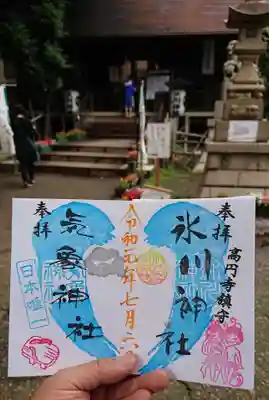 奉拝
高円寺鎮守
氷川神社
令和元年七月六
奉拝
気象神社
日本唯一